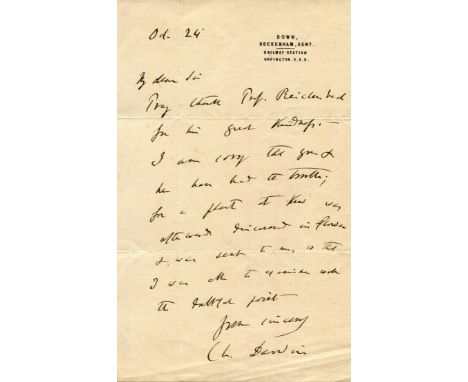 DOWN,
BECKENHAM, KENT.
RAILWAY STATION
ORPINGTON. S.E.R.
Oct. 24
My dear Sir
Pray thank Prof. Reichenbach
for his great kindness.—
I am sorry that you &
he have had the trouble;
for a plant at Kew was
afterwards discovered in flower
& was sent to me, so that
I was able to examine
the doubtful point—
yours sincerely
Ch. Darwin